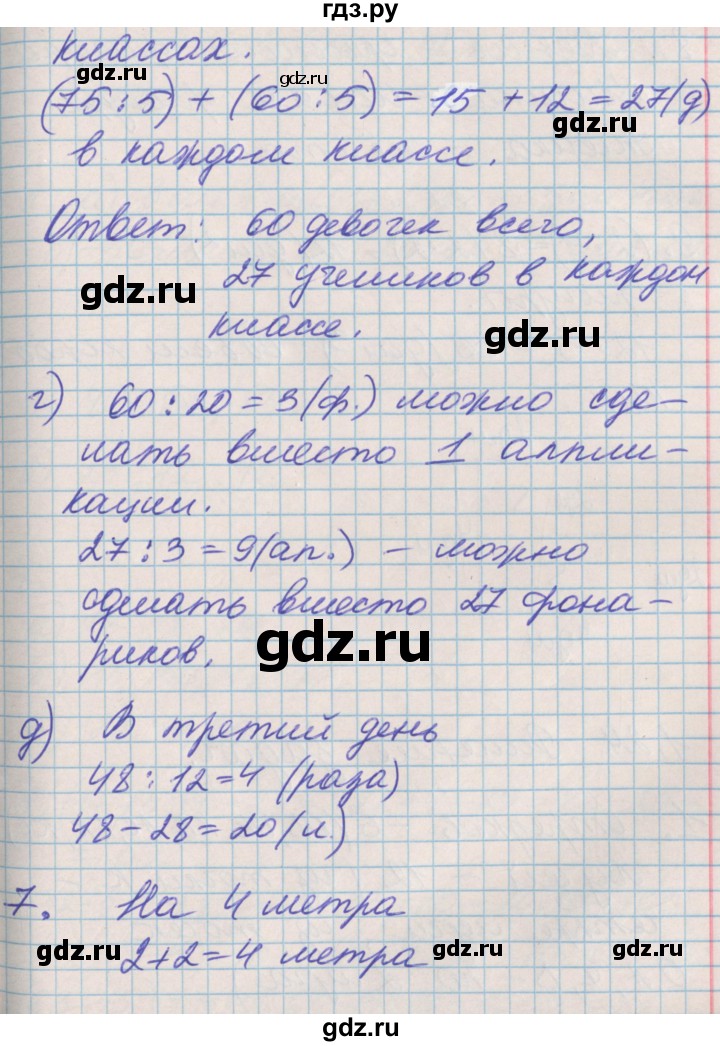 гдз.ру
классах.
gdz.ru gdz.ru
(75:5)+(60:5)=15+12=27(д)
gdz.ru
в каждом классе.
Ответ: 60 девочек всего,
27 учеников в каждом
gdz.ru
классе.
gdz.ru
г) 60:20=3(ф.) можно сде-
лать вместо 1 аппли-
кации.
27:3=9(ап.) - можно
сделать вместо 27 фона-
риков.
gdz.ru
д) В третий день
48:12=4 (раза)
48-28=20(л.)
7. На 4 метра
2+2=4 метра
gdz.ru gdz.ru gdz.ru
gdz.ru